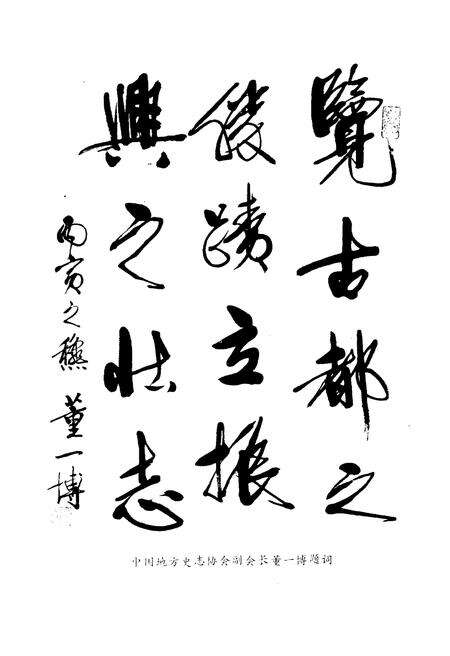 覽古都之
勝蹟立振
興之壯志
丙寅之穐 董一博
中国地方史志协会副会长董一博题词